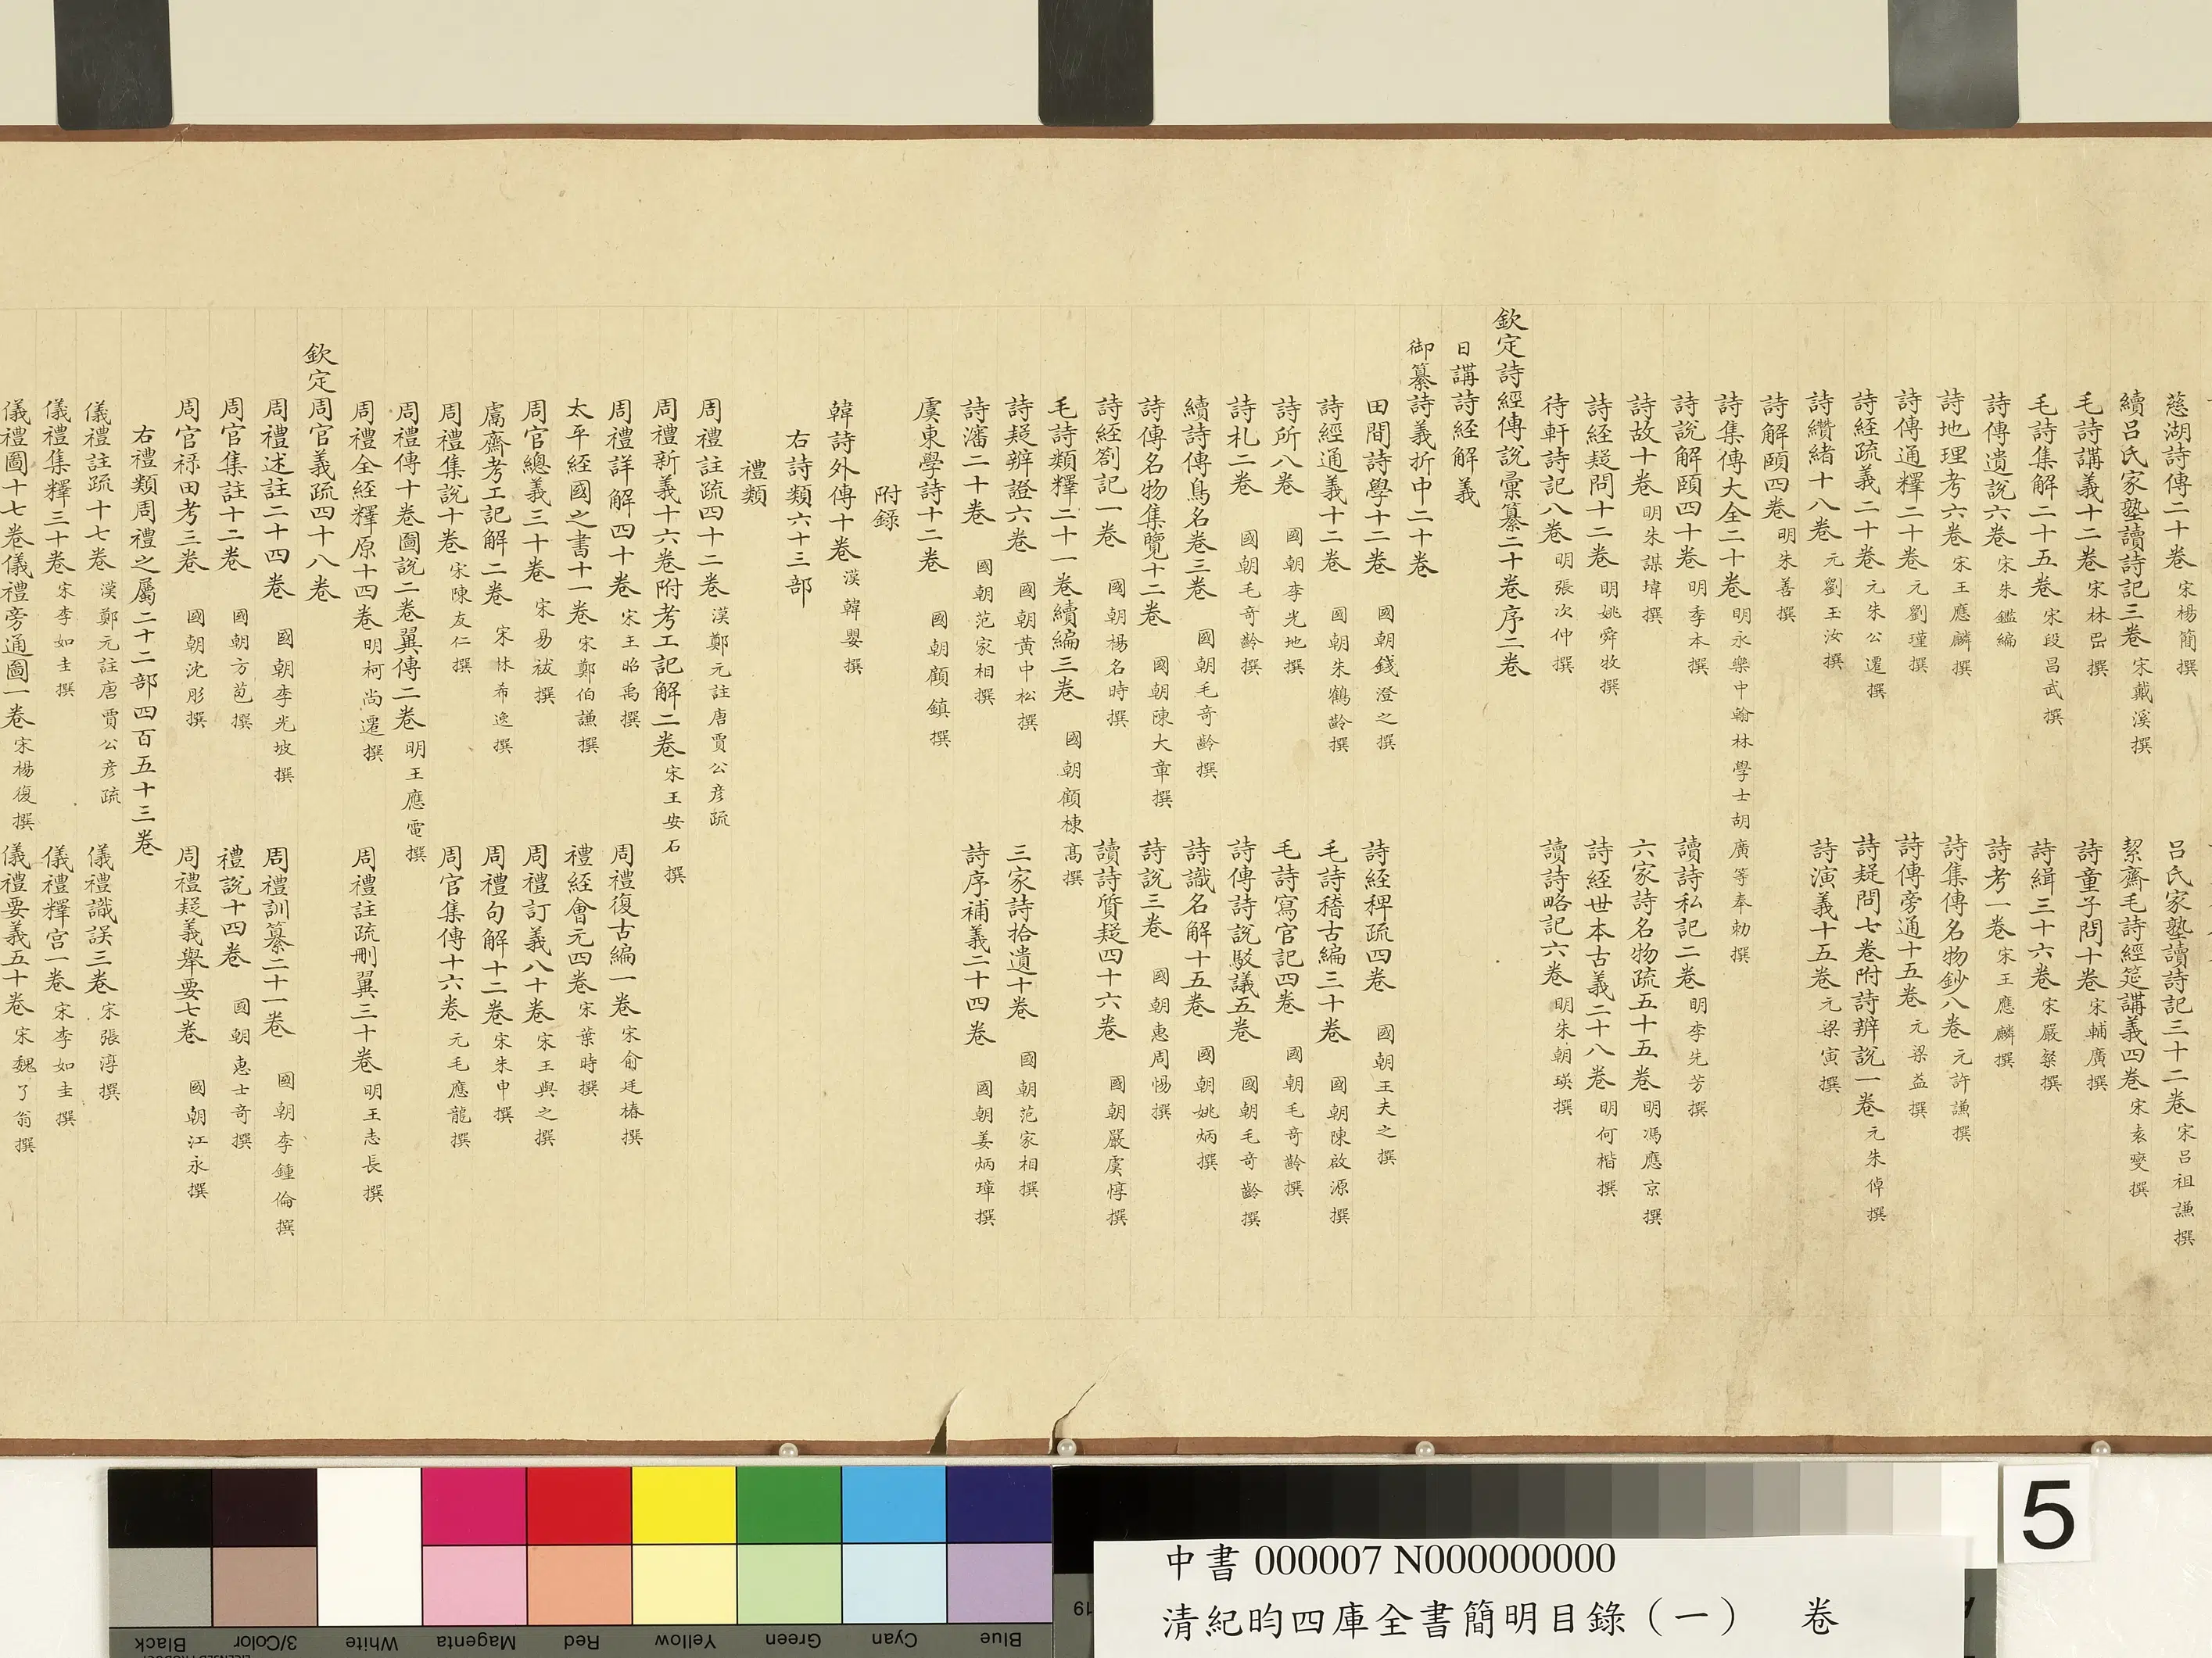 慈湖詩傳二十卷 宋楊簡撰 呂氏家塾讀詩記三十二卷 宋呂祖謙撰
續呂氏家塾讀詩記三卷 宋戴溪撰 絜齋毛詩經筵講義四卷 宋袁燮撰
毛詩講義十二卷 宋林岊撰 詩童子問十卷 宋輔廣撰
毛詩集解二十五卷 宋段昌武撰 詩緝三十六卷 宋嚴粲撰
詩傳遺說六卷 宋朱鑑編 詩考一卷 宋王應麟撰
詩地理考六卷 宋王應麟撰 詩集傳名物鈔八卷 元許謙撰
詩傳通釋二十卷 元劉瑾撰 詩傳旁通十五卷 元梁益撰
詩經疏義二十卷 元朱公遷撰 詩疑問七卷附詩辨說一卷 元朱倬撰
詩纘緒十八卷 元劉玉汝撰 詩演義十五卷 元梁寅撰
詩解頤四卷 明朱善撰
詩集傳大全二十卷 明永樂中翰林學士胡廣等奉勅撰
詩說解頤四十卷 明季本撰 讀詩私記二卷 明李先芳撰
詩故十卷 明朱謀㙔撰 六家詩名物疏五十五卷 明馮應京撰
詩經疑問十二卷 明姚舜牧撰 詩經世本古義二十八卷 明何楷撰
待軒詩記八卷 明張次仲撰 讀詩略記六卷 明朱朝瑛撰
欽定詩經傳說彙纂二十卷序二卷
日講詩經解義
御纂詩義折中二十卷
田間詩學十二卷 國朝錢澄之撰 詩經稗疏四卷 國朝王夫之撰
詩經通義十二卷 國朝朱鶴齡撰 毛詩稽古編三十卷 國朝陳啟源撰
詩所八卷 國朝李光地撰 毛詩寫官記四卷 國朝毛奇齡撰
詩札二卷 國朝毛奇齡撰 詩傳詩說駁議五卷 國朝毛奇齡撰
續詩傳鳥名卷三卷 國朝毛奇齡撰 詩識名解十五卷 國朝姚炳撰
詩傳名物集覽十二卷 國朝陳大章撰 詩說三卷 國朝惠周惕撰
詩經劄記一卷 國朝楊名時撰 讀詩質疑四十六卷 國朝嚴虞惇撰
毛詩類釋二十一卷續編三卷 國朝顧棟高撰
詩疑辨證六卷 國朝黃中松撰 三家詩拾遺十卷 國朝范家相撰
詩瀋二十卷 國朝范家相撰 詩序補義二十四卷 國朝姜炳璋撰
虞東學詩十二卷 國朝顧鎮撰
附錄
韓詩外傳十卷 漢韓嬰撰
右詩類六十三部
禮類
周禮註疏四十二卷 漢鄭元註唐賈公彥疏
周禮新義十六卷附考工記解二卷 宋王安石撰
周禮詳解四十卷 宋王昭禹撰 周禮復古編一卷 宋俞廷椿撰
太平經國之書十一卷 宋鄭伯謙撰 禮經會元四卷 宋葉時撰
周官總義三十卷 宋易祓撰 周禮訂義八十卷 宋王與之撰
鬳齋考工記解二卷 宋林希逸撰 周禮句解十二卷 宋朱申撰
周禮集說十卷 宋陳友仁撰 周官集傳十六卷 元毛應龍撰
周禮傳十卷圖說二卷翼傳二卷 明王應電撰
周禮全經釋原十四卷 明柯尚遷撰 周禮註疏刪翼三十卷 明王志長撰
欽定周官義疏四十八卷
周禮述註二十四卷 國朝李光坡撰 周禮訓纂二十一卷 國朝李鍾倫撰
周官集註十二卷 國朝方苞撰 禮說十四卷 國朝惠士奇撰
周官祿田考三卷 國朝沈彤撰 周禮疑義舉要七卷 國朝江永撰
右禮類周禮之屬二十二部四百五十三卷
儀禮註疏十七卷 漢鄭元註唐賈公彥疏 儀禮識誤三卷 宋張淳撰
儀禮集釋三十卷 宋李如圭撰 儀禮釋宮一卷 宋李如圭撰
儀禮圖十七卷儀禮旁通圖一卷 宋楊復撰 儀禮要義五十卷 宋魏了翁撰
5
中書000007 N000000000
清紀昀四庫全書簡明目錄（一） 卷
Black 3/Color White Magenta Red Yellow Green Cyan Blue
19